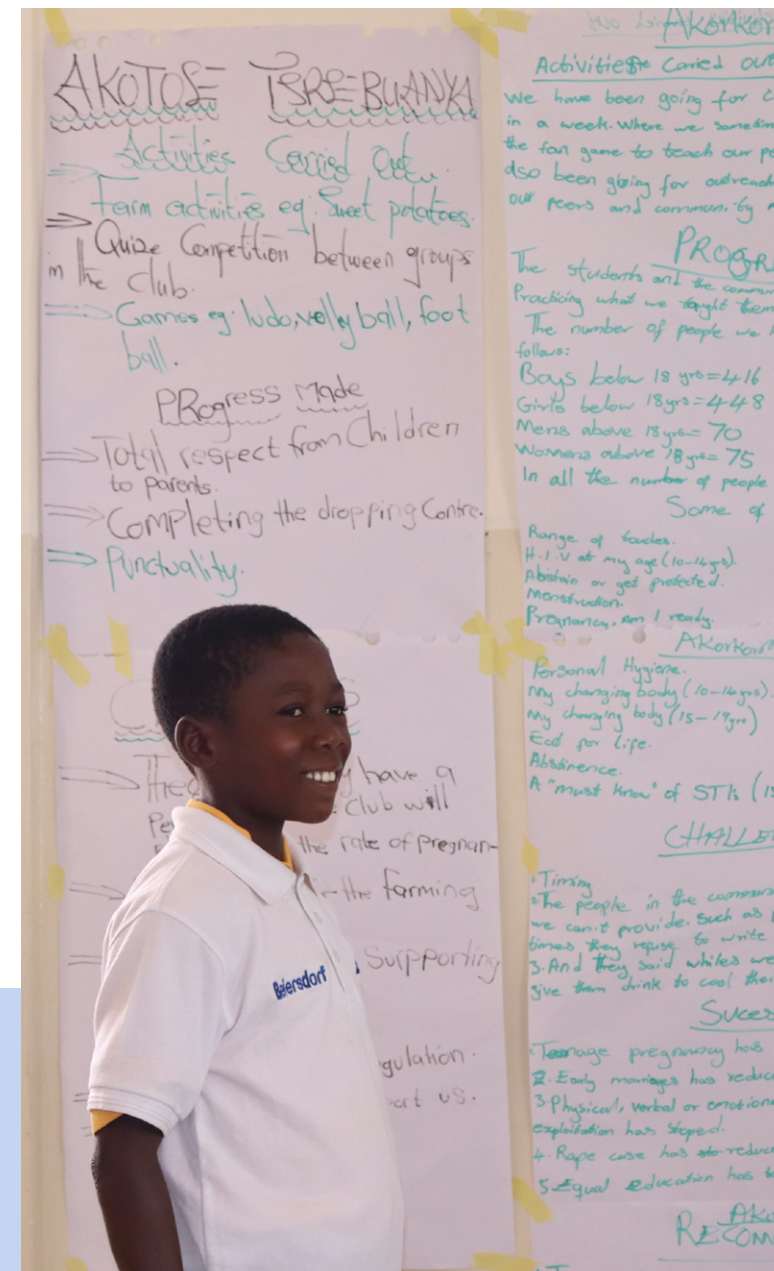 AKOTOSE
Activities Carried Out
Farm activities eg. Sweet potatoes.
Quize Competition between groups
in the club.
Games eg. ludo, volly ball, foot
ball.
PRogress Made
Total respect from Children
to parents.
Completing the dropping Contre.
Punctuality.
have a
Club will
the rate of pregnan-
the farming
Surpporting
gulation.
us.
Beiersdorf
Activities Caried out
We have been going for
in a week. Where we sometim
the fan game to teach our pe
also been going for outreach
our peers and community
PROGR
The students and the commun
Practicing what we taught them
The number of people we
follows:
Boys below 18 yrs = 416
Girls below 18 yrs = 448
Mens above 18 yrs = 70
Womens above 18 yrs = 75
In all the number of people
Some of
Range of touches.
H.I.V at my age (10-14yrs).
Abstain or get protected.
Menstruation.
Pregnancy, am I ready.
Personal Hygiene.
My changing body (10-14yrs).
My changing body (15-19yrs)
Eat for life.
Abstinence.
A "must know" of STIs
CHALLE
1. Timing
2. The people in the commun
we can't provide. Such as
times they refuse to write
3. And they said whiles we
give them drink to cool
Suces
1. Teenage pregnancy has
2. Early marriages has reduc
3. Physical, verbal or emotion
exploitation has stoped.
4. Rape case has reduc
5. Equal education has
RECOM